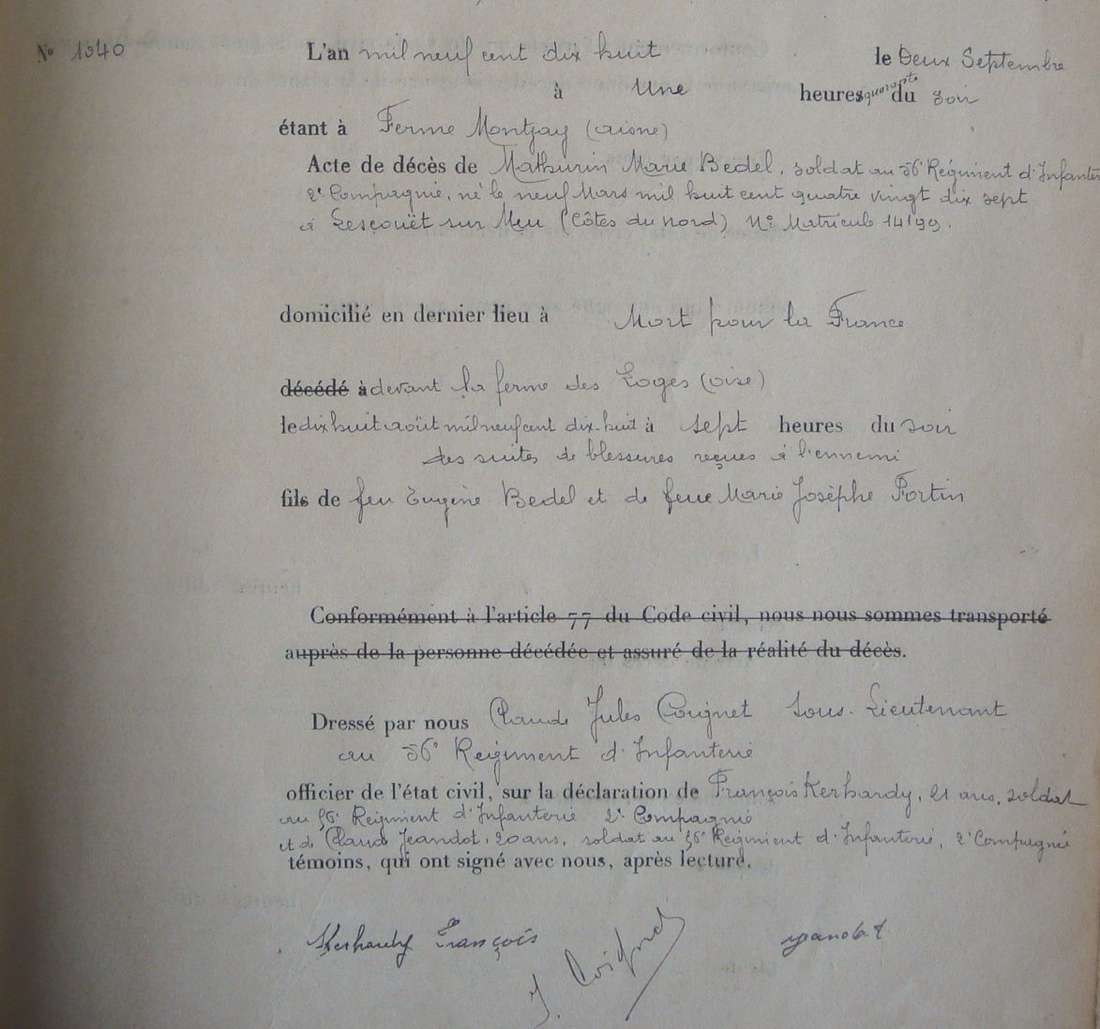 N° 1340
L'an mil neuf cent dix huit le Deux Septembre
à Une heures quarante du soir
étant à Ferme Montjay (aisne)
Acte de décès de Mathurin Marie Bedel, soldat au 56e Régiment d'Infanterie
2e Compagnie, né le neuf Mars mil huit cent quatre vingt dix sept
à Lescouët sur Meu (Côtes du Nord) N° Matricule 14199.
domicilié en dernier lieu à Mort pour la France
décédé à devant la ferme des Loges (oise)
le dix huit août mil neuf cent dix-huit à sept heures du soir
des suites de blessures reçues à l'ennemi
fils de feu Eugène Bedel et de feue Marie Josèphe Fortin
Conformément à l'article 77 du Code civil, nous nous sommes transporté
auprès de la personne décédée et assuré de la réalité du décès.
Dressé par nous Claude Jules Coignet Sous-Lieutenant
au 56e Regiment d'Infanterie
officier de l'état civil, sur la déclaration de François Kerhardy, 21 ans, soldat
au 56e Regiment d'Infanterie 2e Compagnie
et de Claude Jeandot, 20 ans, soldat au 56e Regiment d'Infanterie, 2e Compagnie
témoins, qui ont signé avec nous, après lecture.
Kerhardy François J. Coignet Jeandot